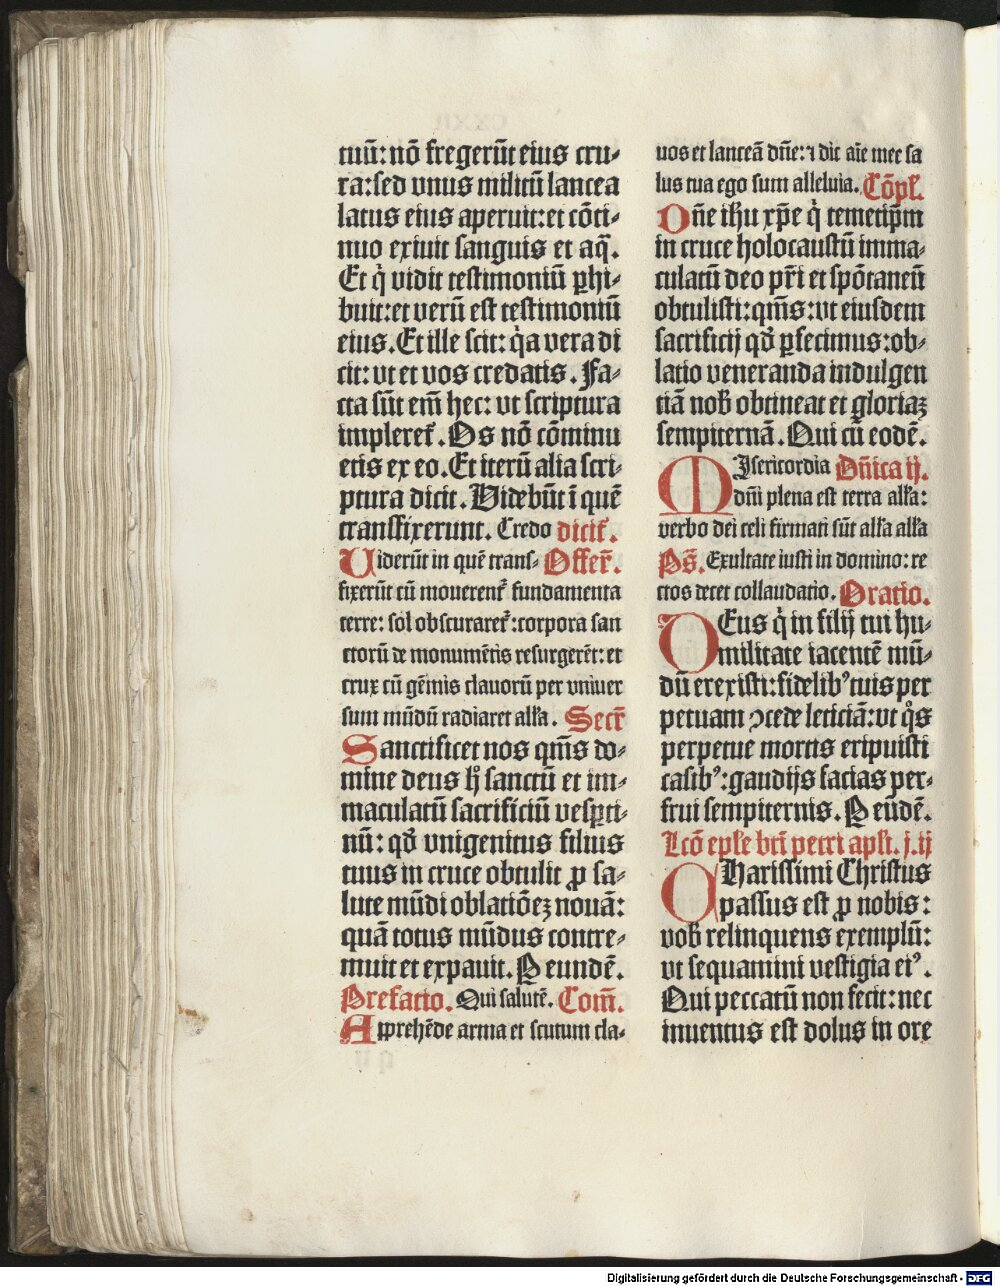 tuū: nō fregerūt eius cru-
ra: sed vnus militū lancea
latus eius aperuit: et cōti-
nuo exiuit sanguis et aq̄.
Et q̇ vidit testimoniū ꝑhi-
buit: et verū est testimoniū
eius. Et ille scit: q̇a vera di
cit: vt et vos credatis. Fa-
cta sūt em̄ hec: vt scriptura
impleret᷑. Os nō cōminu
etis ex eo. Et iterū alia scri-
ptura dicit. Videbūt ī quē
transfixerunt. Credo dicit᷑.
Viderūt in quē trans- Offer᷑.
fixerūt cū mouerent᷑ fundamenta
terre: sol obscuraret᷑: corpora san
ctorū de monumētis resurgerēt: et
crux cū gēmis clauorū per vniuer
sum mūdū radiaret alľa. Secr̄
Sanctificet nos qm̄s do-
mine deus h̊ sanctū et im-
maculatū sacrificiū vesꝑti-
nū: qď vnigenitus filius
tuus in cruce obtulit ꝓ sa-
lute mūdi oblatiōeꝫ nouā:
quā totus mūdus contre-
muit et expauit. P eundē.
Prefatio. Qui salutē. Com̄.
Apprehēde arma et scutum cla-
uos et lanceā dn̄e: ⁊ dic aīe mee sa
lus tua ego sum alleluia. Cōpľ.
One ihū xp̄e q̇ temetip̄m
in cruce holocaustū imma-
culatū deo pr̄i et spōtaneū
obtulisti: qm̄s: vt eiusdem
sacrificij qď ꝑfecimus: ob-
latio veneranda indulgen
tiā noƀ obtineat et gloriaꝫ
sempiternā. Qui cū eodē.
MIsericordia Dn̄ica ij.
dn̄i plena est terra alľa:
verbo dei celi firmati sūt alľa alľa
Ps̄. Exultate iusti in domino: re
ctos decet collaudatio. Oratio.
DEus q̇ in filij tui hu-
militate iacentē mū-
dū erexisti: fidelibꝰ tuis per
petuam ꝯcede leticiā: vt q̊s
perpetue mortis eripuisti
casibꝰ: gaudijs facias per-
frui sempiternis. P eūdē.
Lcō epľe bt̄i petri apľi. j. ij
CHarissimi Christus
passus est ꝓ nobis:
voƀ relinquens exemplū:
vt sequamini vestigia eiꝰ.
Qui peccatū non fecit: nec
inuentus est dolus in ore
Digitalisierung gefördert durch die Deutsche Forschungsgemeinschaft - DFG